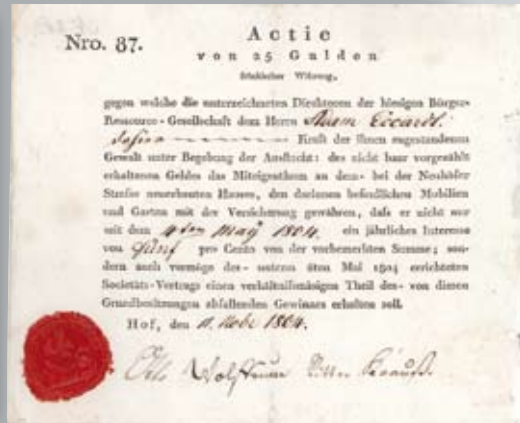 Nro. 37.
Actie
von 25 Gulden
fränkischer Währung,
gegen welche die unterzeichneten Direktoren der hiesigen Bürger-
Ressource-Gesellschaft dem Herrn Adam Eccardt
Kraft der ihnen zugestandenen
Gewalt unter Begebung der Ausflucht: des nicht baar vorgezählt
erhaltenen Geldes das Miteigenthum an dem bei der Neuhöfer
Strasse neuerbauten Hauses, den darinnen befindlichen Mobilien
und Garten mit der Versicherung gewähren, daß er nicht nur
seit dem 4ten May 1804. ein jährliches Interesse
von Fünf pro Cento von der vorbemerkten Summe; son-
dern auch vermöge des unterm 8ten Mai 1804 errichteten
Societäts-Vertrags einen verhältnißmäsigen Theil des von diesen
Grundbesitzungen abfallenden Gewinnes erhalten soll.
Hof, den 11. Nobr 1804.